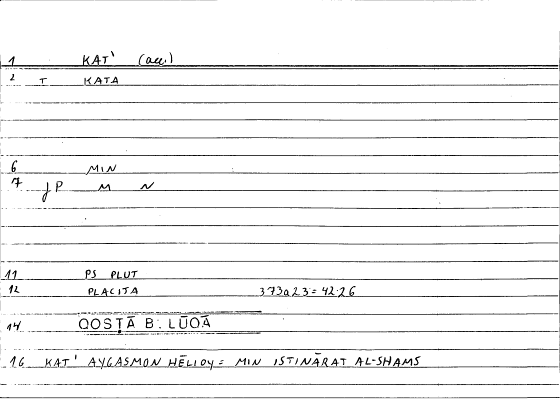 1 KAT' (acc.)
2 T KATA
6 MIN
7 JP M N
11 PS PLUT
12 PLACITA 373a23 = 42.26
14 QOSṬĀ B. LŪQĀ
16 KAT' AYGASMON HĒLIOY = MIN ISTINĀRAT AL-SHAMS